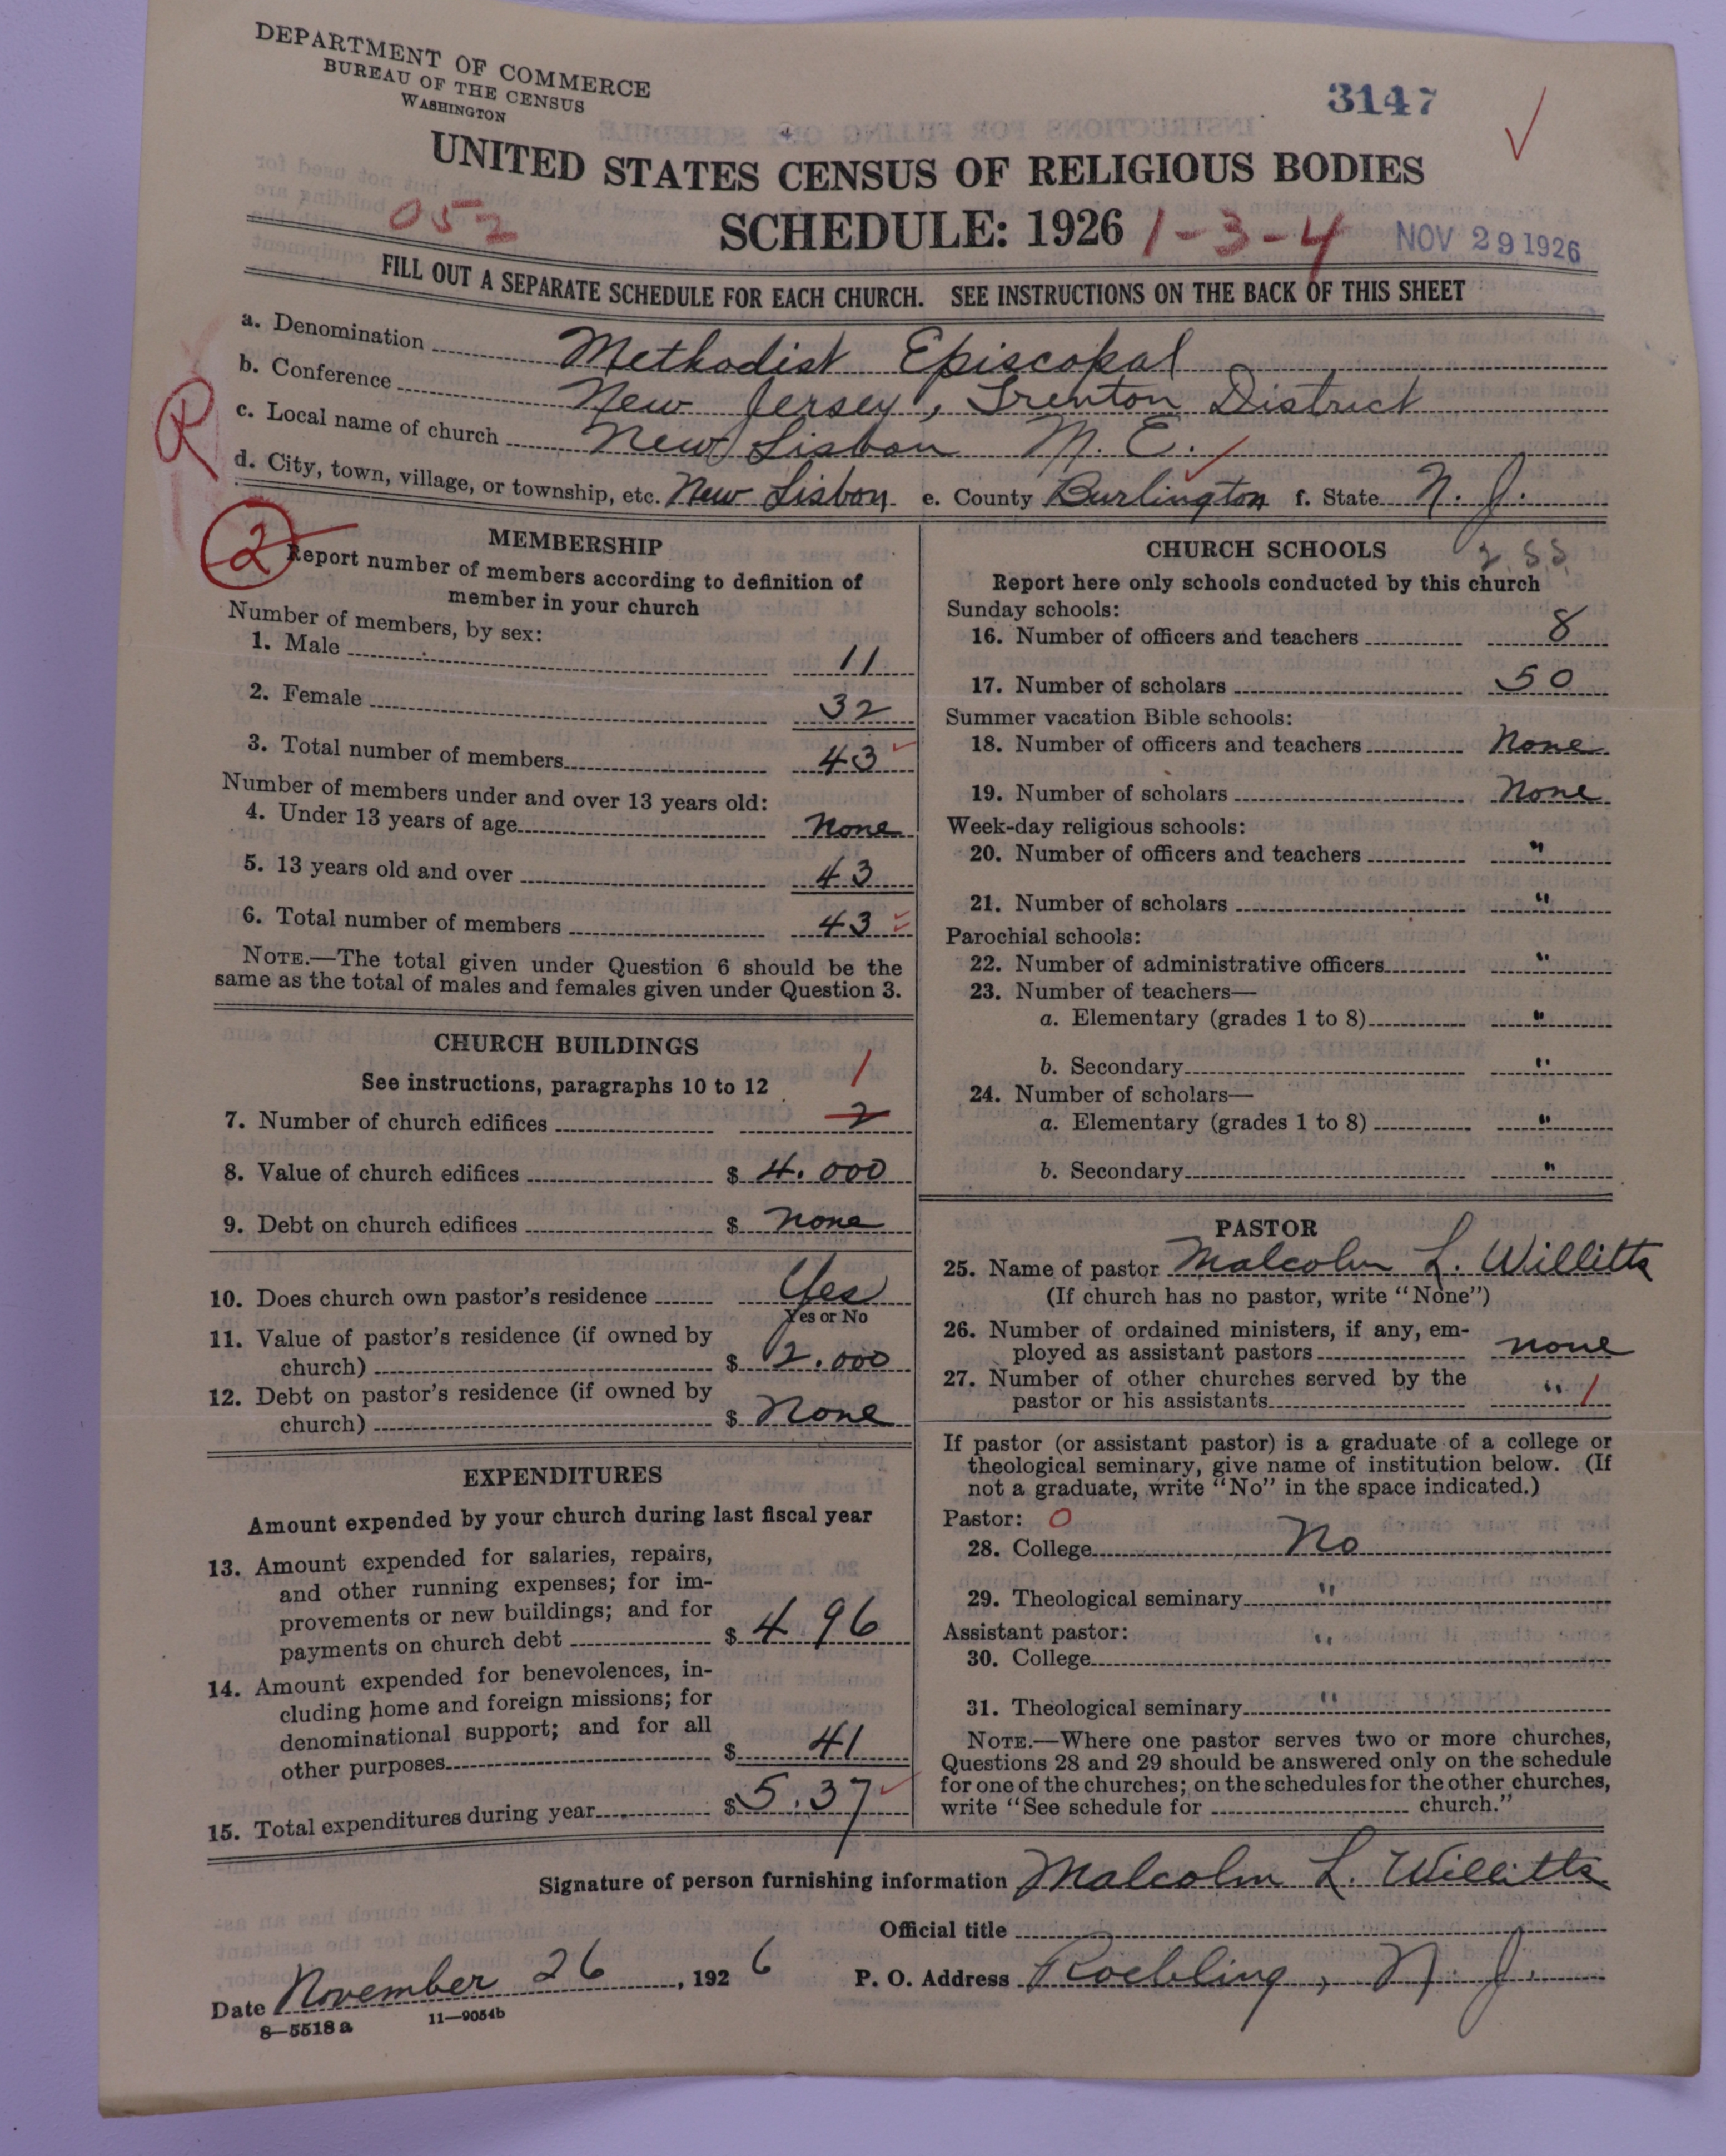 DEPARTMENT OF COMMERCE
BUREAU OF THE CENSUS
WASHINGTON
3147
UNITED STATES CENSUS OF RELIGIOUS BODIES
052 SCHEDULE: 1926 1-3-4 NOV 29 1926
FILL OUT A SEPARATE SCHEDULE FOR EACH CHURCH. SEE INSTRUCTIONS ON THE BACK OF THIS SHEET
a. Denomination Methodist Episcopal
b. Conference New Jersey, Trenton District
c. Local name of church New Lisbon M. E.
R
d. City, town, village, or township, etc. New Lisbon e. County Burlington f. State N. J.
2
MEMBERSHIP
Report number of members according to definition of
member in your church
Number of members, by sex:
1. Male 11
2. Female 32
3. Total number of members 43
Number of members under and over 13 years old:
4. Under 13 years of age None
5. 13 years old and over 43
6. Total number of members 43
NOTE.—The total given under Question 6 should be the
same as the total of males and females given under Question 3.
CHURCH BUILDINGS
See instructions, paragraphs 10 to 12 1
7. Number of church edifices 2
8. Value of church edifices $ 4.000
9. Debt on church edifices $ None
10. Does church own pastor's residence Yes
Yes or No
11. Value of pastor's residence (if owned by
church) $ 2.000
12. Debt on pastor's residence (if owned by
church) $ None
EXPENDITURES
Amount expended by your church during last fiscal year
13. Amount expended for salaries, repairs,
and other running expenses; for im-
provements or new buildings; and for
payments on church debt $ 496
14. Amount expended for benevolences, in-
cluding home and foreign missions; for
denominational support; and for all
other purposes $ 41
15. Total expenditures during year $ 5.37
CHURCH SCHOOLS 2 S.S.
Report here only schools conducted by this church
Sunday schools:
16. Number of officers and teachers 8
17. Number of scholars 50
Summer vacation Bible schools:
18. Number of officers and teachers None
19. Number of scholars None
Week-day religious schools:
20. Number of officers and teachers "
21. Number of scholars "
Parochial schools:
22. Number of administrative officers "
23. Number of teachers—
a. Elementary (grades 1 to 8) "
b. Secondary "
24. Number of scholars—
a. Elementary (grades 1 to 8) "
b. Secondary "
PASTOR
25. Name of pastor Malcolm L. Willitts
(If church has no pastor, write "None")
26. Number of ordained ministers, if any, em-
ployed as assistant pastors none
27. Number of other churches served by the
pastor or his assistants " 1
If pastor (or assistant pastor) is a graduate of a college or
theological seminary, give name of institution below. (If
not a graduate, write "No" in the space indicated.)
Pastor: 0
28. College No
29. Theological seminary "
Assistant pastor:
30. College "
31. Theological seminary "
NOTE.—Where one pastor serves two or more churches,
Questions 28 and 29 should be answered only on the schedule
for one of the churches; on the schedules for the other churches,
write "See schedule for church."
Signature of person furnishing information Malcolm L. Willitts
Official title
Date November 26, 1926 P. O. Address Roebling, N. J.
8—5518 a 11—9054b